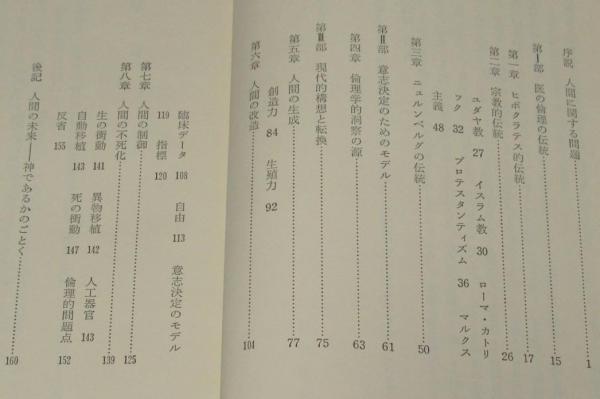 序説 人間に関する問題……1
第I部 医の倫理の伝統……15
第一章 ヒポクラテス的伝統……17
第二章 宗教的伝統……26
ユダヤ教 27 イスラム教 30 ローマ・カトリ
ック 32 プロテスタンティズム 36 マルクス
主義 48
第三章 ニュルンベルグの伝統……50
第II部 意志決定のためのモデル……61
第四章 倫理学的洞察の源……63
第III部 現代的構想と転換……75
第五章 人間の生成……77
創造力 84 生殖力 92
第六章 人間の改造……104
臨床データ 108 自由 113 意志決定のモデル
119 指標 120
第七章 人間の制御……125
第八章 人間の不死化……139
生の衝動 141 異物移植 142 人工器官 143
自動移植 143 死の衝動 147 倫理的問題点 152
反省 155
後記 人間の未来──神であるかのごとく……160